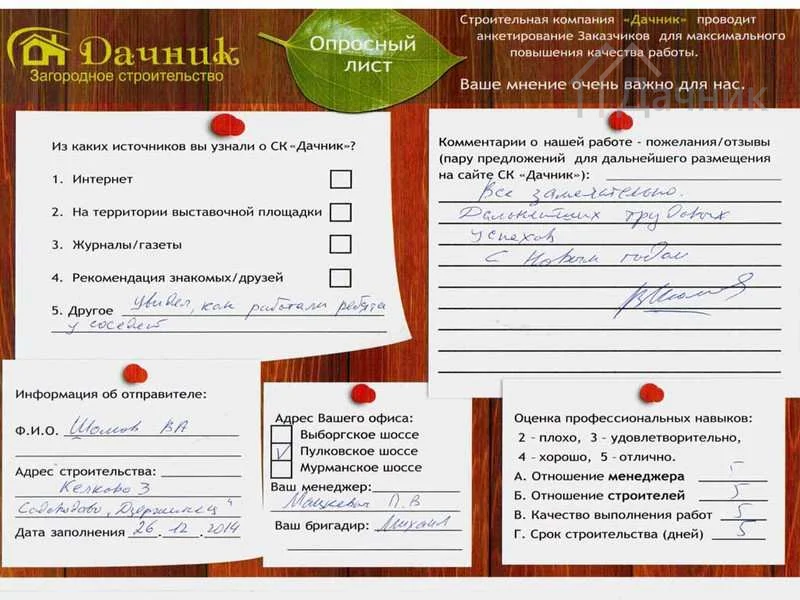 Дачник
Загородное строительство
Опросный
лист
Строительная компания «Дачник» проводит
анкетирование Заказчиков для максимального
повышения качества работы.
Ваше мнение очень важно для нас.
Дачник
Из каких источников вы узнали о СК «Дачник»?
1. Интернет
2. На территории выставочной площадки
3. Журналы/газеты
4. Рекомендация знакомых/друзей
5. Другое увидел, как работали ребята
у соседей
Комментарии о нашей работе - пожелания/отзывы
(пару предложений для дальнейшего размещения
на сайте СК «Дачник»):
Все замечательно.
Дальнейших трудовых
успехов
С Новым годом
Информация об отправителе:
Ф.И.О. Шомов ВА
Адрес строительства:
Келколово 3
Садоводство "Дзержинец"
Дата заполнения 26.12.2014
Адрес Вашего офиса:
Выборгское шоссе
V Пулковское шоссе
Мурманское шоссе
Ваш менеджер:
П.В
Ваш бригадир: Михаил
Оценка профессиональных навыков:
2 - плохо, 3 - удовлетворительно,
4 - хорошо, 5 - отлично.
А. Отношение менеджера 5
Б. Отношение строителей 5
В. Качество выполнения работ 5
Г. Срок строительства (дней) 5